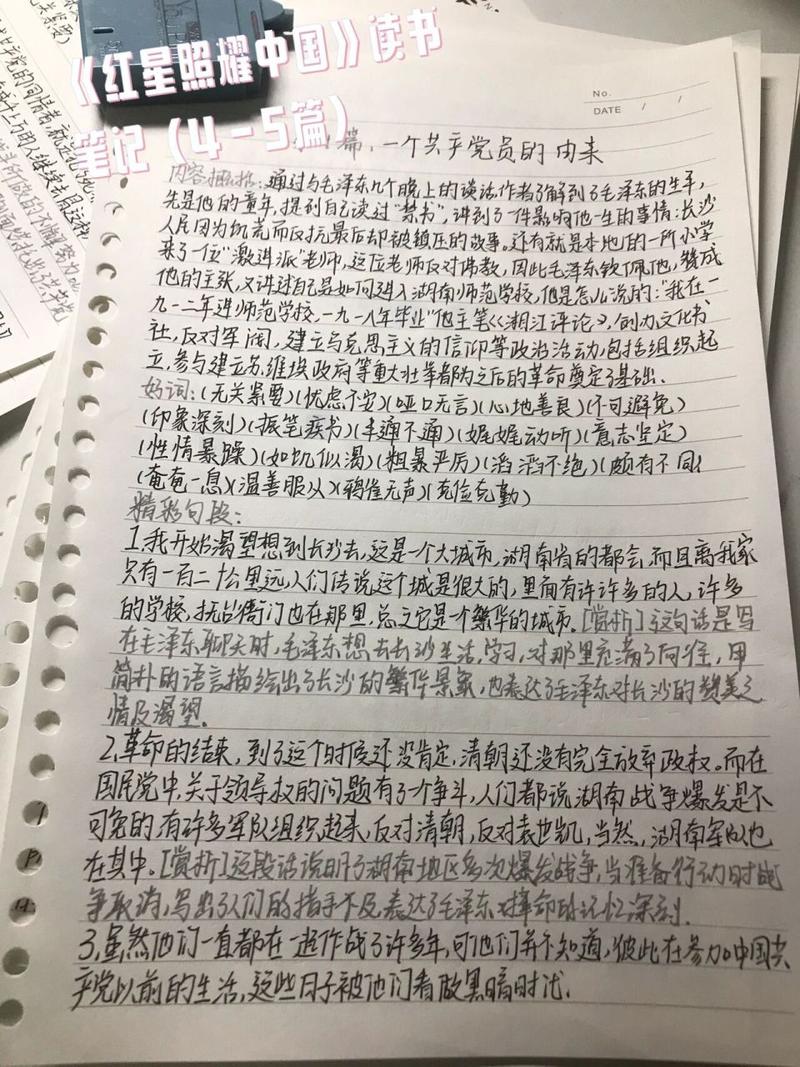 《红星照耀中国》读书
笔记（4-5篇）
No.
DATE / /
篇、一个共产党员的由来
内容概括：通过与毛泽东几个晚上的谈话，作者了解到了毛泽东的生平，
先是他的童年，提到自己读过“禁书”，讲到了一件影响他一生的事情：长沙
人民因为饥荒而反抗最后却被镇压的故事。还有就是本地的一所小学
来了一位“激进派”老师，这位老师反对佛教，因此毛泽东钦佩他，赞成
他的主张，又讲过自己是如何进入湖南师范学校，他是怎么说的：“我在一
九一二年进师范学校，一九一八年毕业”他主笔《湘江评论》，创办文化书
社，反对军阀，建立马克思主义的信仰等政治活动，包括组织起
立，参与建立苏维埃政府等重大壮举都为之后的革命奠定了基础.
好词：(无关紧要)(忧虑不安)(哑口无言)(心地善良)(不可避免)
(印象深刻)(振笔疾书)(半通不通)(娓娓动听)(意志坚定)
(性情暴躁)(如饥似渴)(粗暴严厉)(滔滔不绝)(颇有不同)
(奄奄一息)(温善服从)(鸦雀无声)(克俭克勤)
精彩句段：
1.我开始渴望想到长沙去，这是一个大城市，湖南省的都会，而且离我家
只有一百二十公里远，人们传说这个城是很大的，里面有许许多多的人，许多
的学校，抚台衙门也在那里，总之它是个繁华的城市。[赏析]这句话是写
在毛泽东聊天时，毛泽东想去长沙生活，学习，对那里充满了向往，用
简朴的语言描绘出了长沙的繁华景象，也表达了毛泽东对长沙的赞美之
情及渴望.
2.革命的结束，到了这个时候还没肯定，清朝还没有完全放弃政权。而在
国民党中，关于领导权的问题有了个争斗，人们都说湖南战争爆发是不
可免的，有许多军队组织起来，反对清朝，反对袁世凯，当然，湖南军队也
在其中。[赏析]这段话说明了湖南地区多次爆发战争，当准备行动时战
争取消，写出了人们的措手不及，表达了毛泽东对革命的记忆深刻.
3.虽然他们一直都在一起作战了许多年，可他们并不知道，彼此在参加中国共
产党以前的生活，这些日子被他们看做黑暗时代.